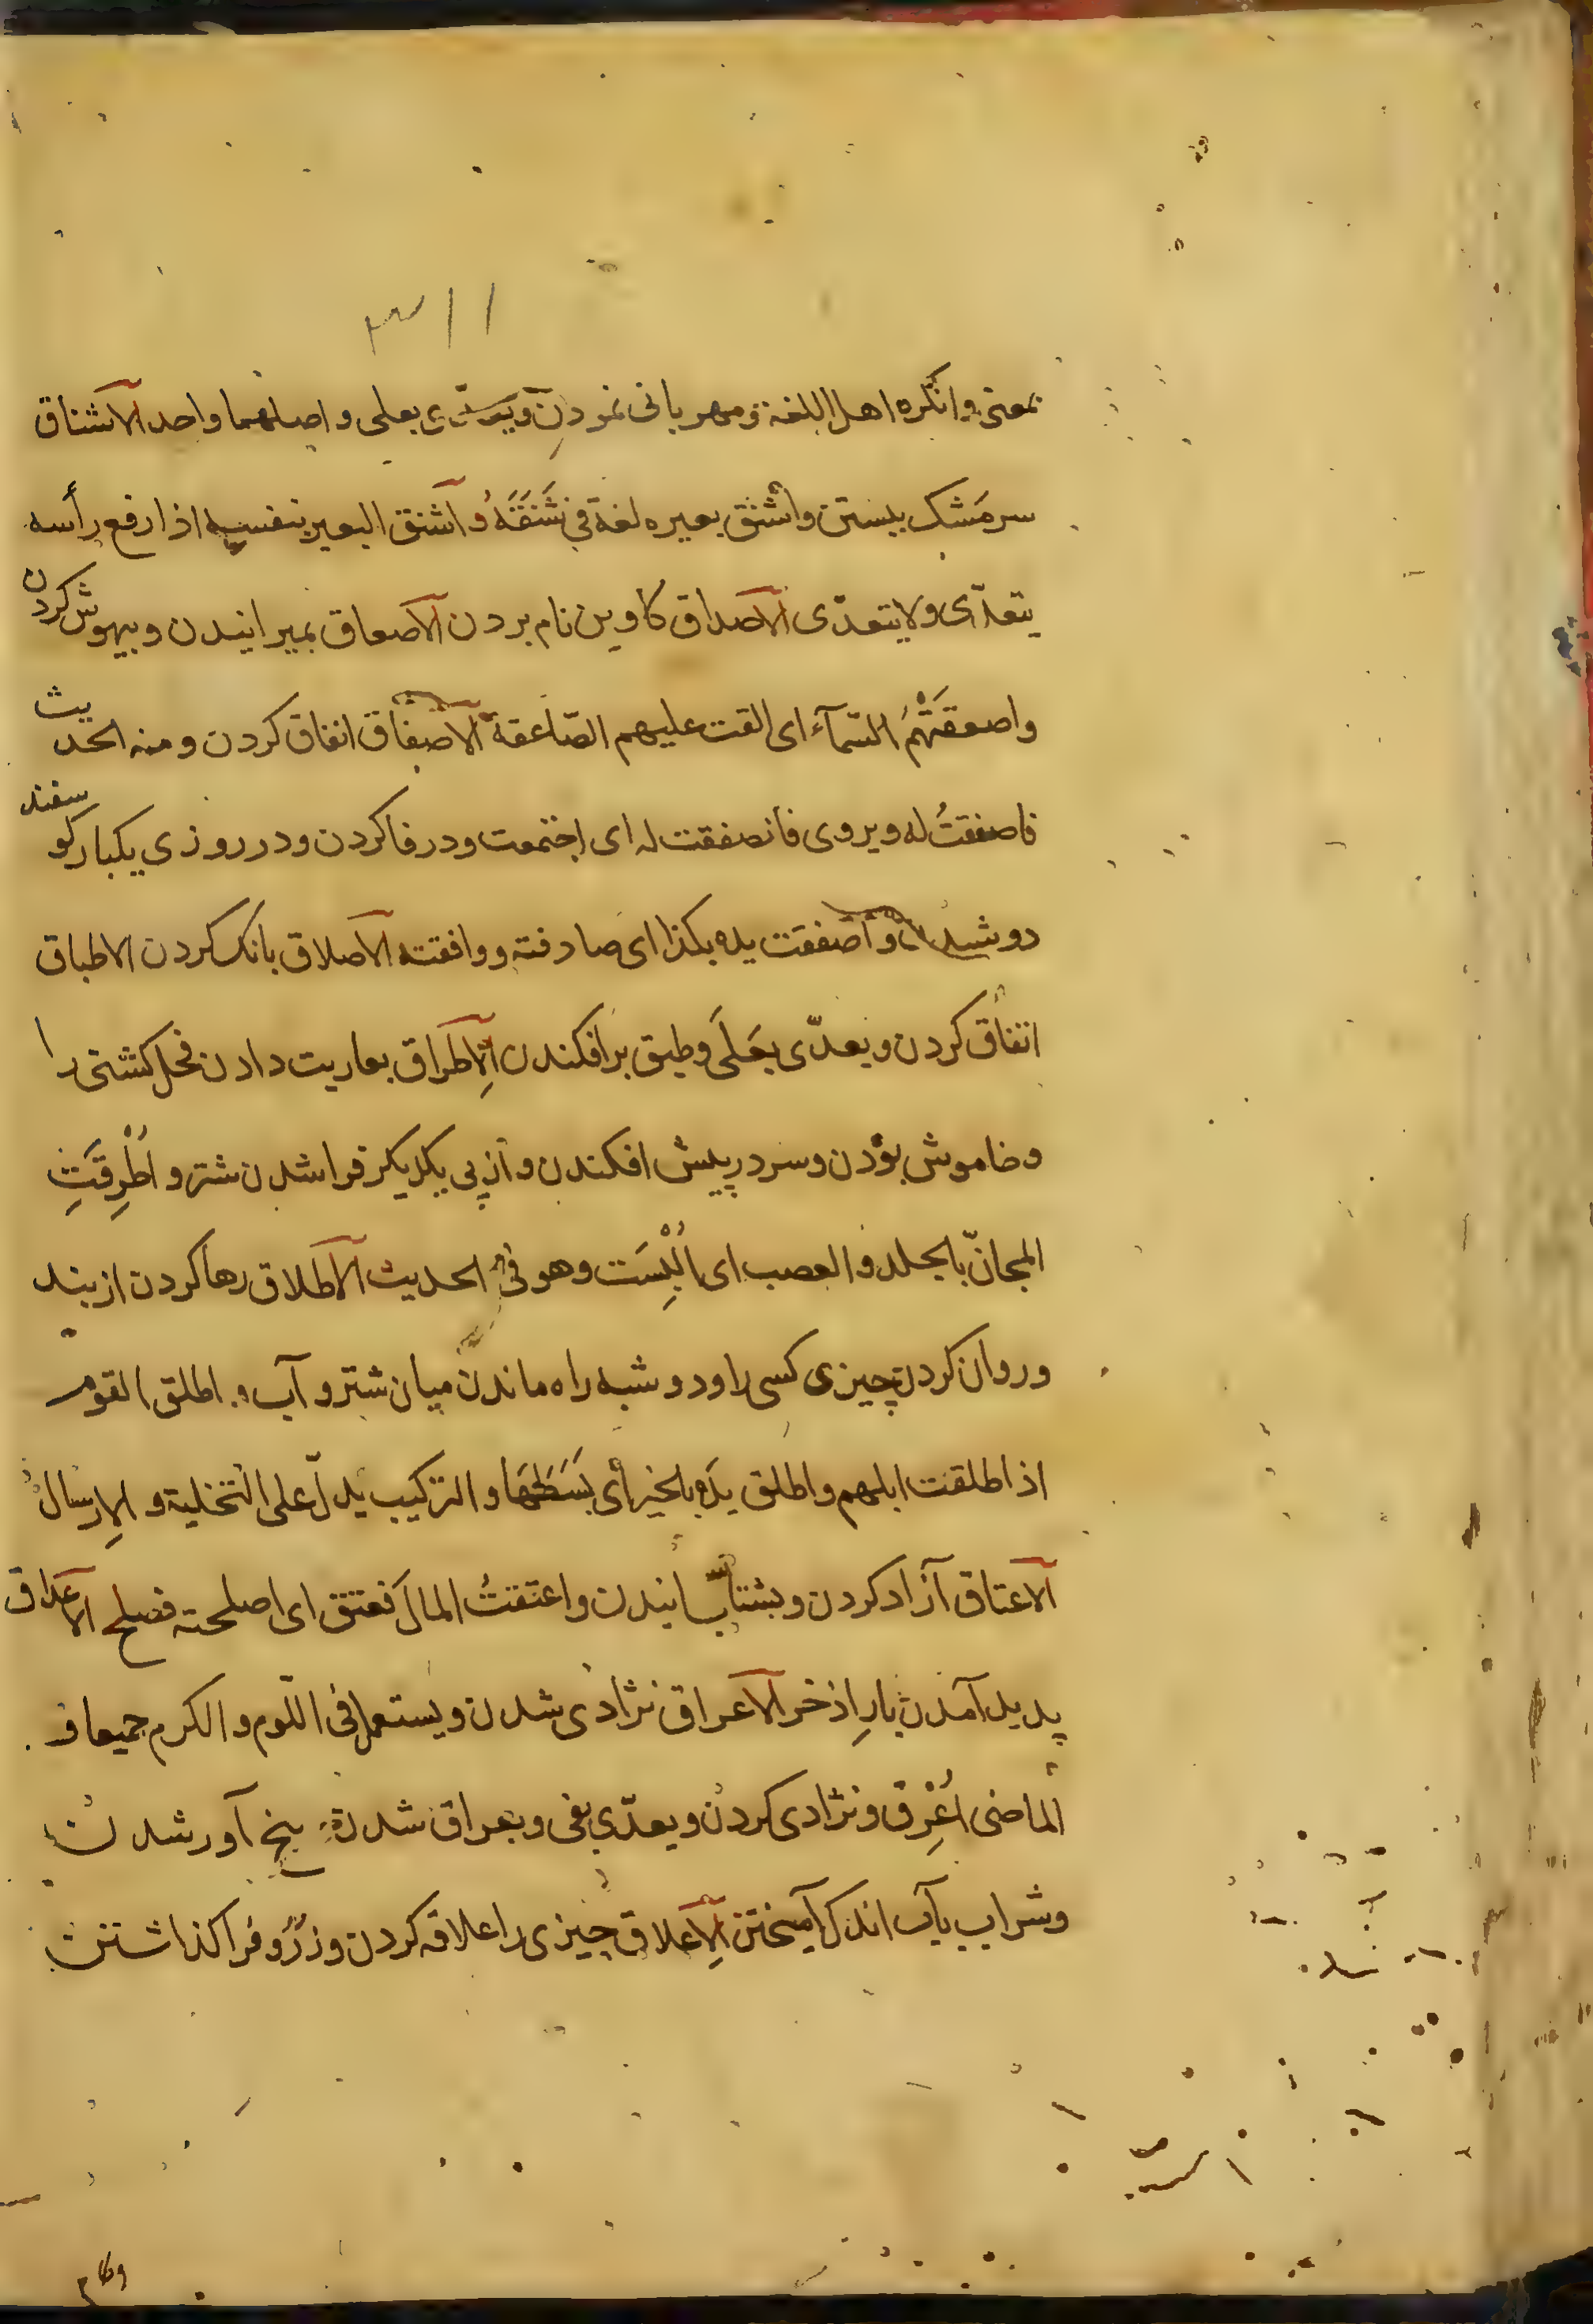 ۳۱۱
بمعنی و انکره اهل اللغة و مهربانی نمودن و یعدّی بعلی و اصلهما واحد الاشناق
سر مَشک ببستن و اشنق بعیره لغة فی شَنَقَهُ و اشنق البعیر بنفسه اذا رفع رأسه
یتعدّی ولا یتعدّی الاصداق کاوین نام بردن الاصعاق بمیرانیدن و بیهوش کردن
واصعقَتْهُم السّمآء ای القت علیهم الصّاعقة الاصفاق اتفاق کردن و منه الحدیث
فاصفقتُ له ویروی فانصفقت له ای اجتمعت و در فا کردن و در روزی یکبار کوسفند
دوشیدن و اصفقت یده بکذا ای صادفته و وافقته الاصلاق بانک کردن الاطباق
اتفاق کردن و یعدّی بعَلَی و طبق بر افکندن الاِطراق بعاریت دادن فحل کشنی را
و خاموش بودن و سر در پیش افکندن و از پی یکدیکر فرا شدن شتر و اُطْرِقَتِ
المجانّ بالجلد و العصب ای اُلْبِسَت وهو فی الحدیث الاطلاق رها کردن از بند
و روان کردن چیزی کسی را و دو شبه راه ماندن میان شتر و آب و اطلق القوم
اذا طلقت ابلهم و اطلق یدَه بالخیر أی بَسَطَهَا و الترکیب یدلّ علی التخلیة و الاِرسال
الاعتاق آزاد کردن و بشتابانیدن و اعتقتُ المالَ فعتق ای اصلحته فصلح الاعذاق
پدید آمدن بارِ اذخر الاعراق نژادی شدن و یستعمل فی اللّوم و الکرم جمیعا و
الماضی اُعْرِق و نژادی کردن و یعدّی بفی و بعراق شدن و بیخ آور شدن
و شراب بآب اندک آمیختن الاِعلاق چیزی را علاقه کردن و زُرُو فرا کذاشتن